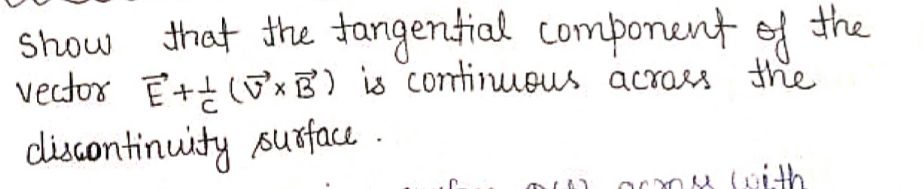 Show that the tangential component of the
vector E⃗ + 1/c (V⃗ × B⃗) is continuous across the
discontinuity surface.
with